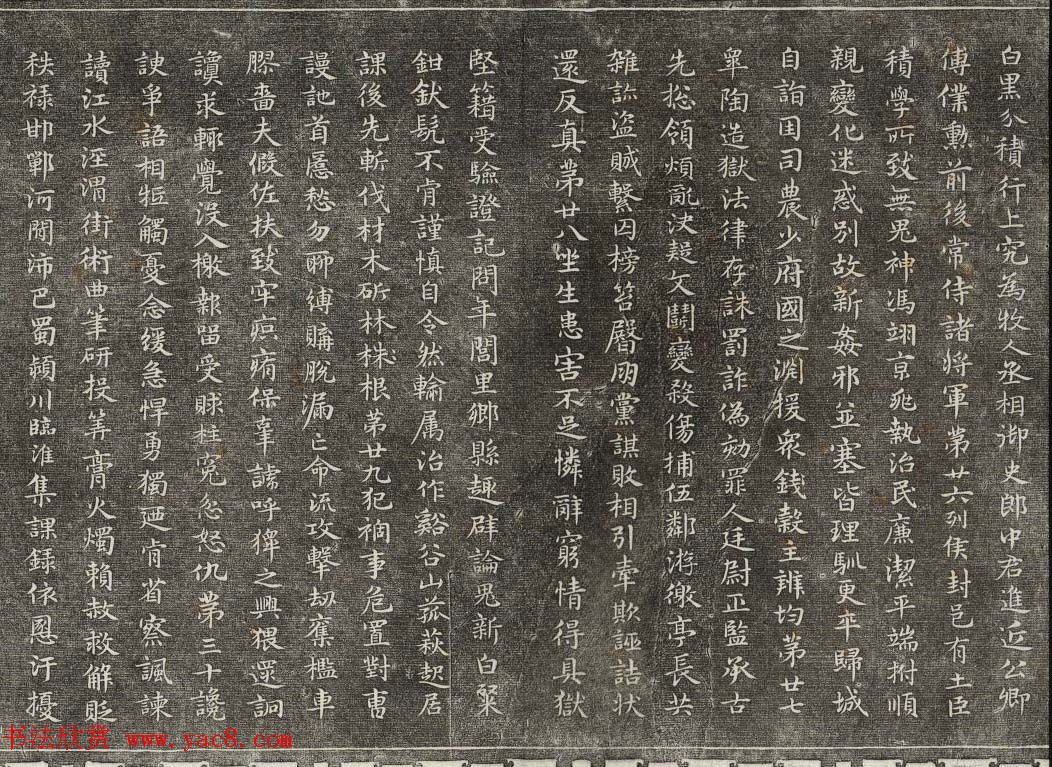 白黒分積行上究為牧人丞相御史郎中君進近公卿
傅僕勲前後常侍諸将軍第廿六列侯封邑有土臣
積學所致無鬼神馮翊京兆執治民廉潔平端拊順
親變化迷惑別故新姦邪並塞皆理馴更卒歸城
自詣田司農少府國之淵援衆錢穀主辨均第廿七
睾陶造獄法律存誅罰詐偽劾罪人廷尉正監承古
先総領煩亂決疑文鬭變殺傷捕伍鄰游徼亭長共
雑診盗賊繫囚榜笞臀朋黨謀敗相引牽欺誣詰状
還反真第廿八坐生患害不足憐辭窮情得具獄
堅籍受驗證記問年閭里鄉縣趣辟論鬼新白粲
鉗釱髡不肯謹慎自令然輸属治作谿谷山菰萩起居
課後先斬伐材木斫林株根第廿九犯禍事危置對曹
謾訑首匿愁勿聊縛購脫漏亡命流攻擊劫奪檻車
膠嗇夫假佐扶致牢疻痏保辜謼呼獋之興猥逮詗
讀求輒覺没入檄報留受賕枉寃忿怒仇第三十讒
諛爭語相牴觸憂念緩急悍勇獨廼肯省察諷諫
讀江水涇渭街術曲筆研投筭膏火燭賴赦救解貶
秩禄邯鄲河間沛巴蜀潁川臨淮集課録依恩汙擾
书法欣赏 www.yac8.com